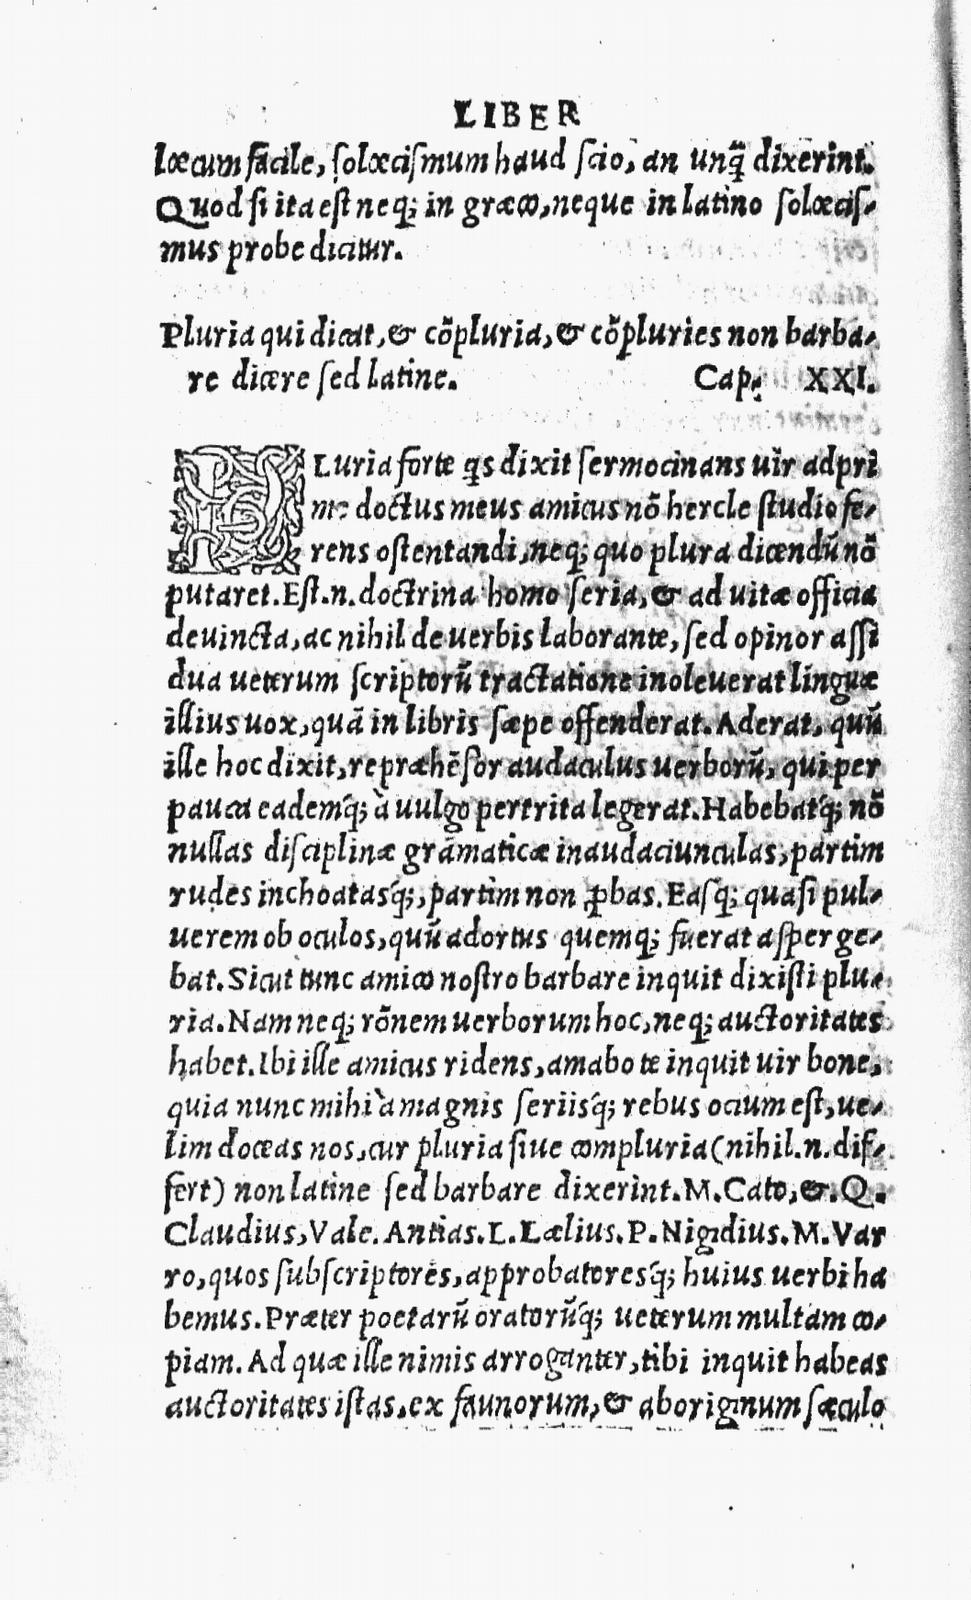 LIBER
lœcum facile, ſolœciſmum haud ſcio, an unq̃ dixerint.
Quod ſi ita eſt neq; in græco, neque in latino ſolœciſ-
mus probe dicitur.
Pluria qui dicat, & cõpluria, & cõpluries non barba-
re dicere ſed latine. Cap. XXI.
PLuria forte q̃s dixit ſermocinans uir adpri
me doctus meus amicus nõ hercle ſtudio fe-
rens oſtentandi, neq; quo plura dicendũ nõ
putaret. Eſt.n. doctrina homo ſeria, & ad uitæ officia
deuincta, ac nihil de uerbis laborante, ſed opinor aſſi
dua ueterum ſcriptorũ tractatione inoleuerat linguæ
illius uox, quã in libris ſæpe offenderat. Aderat, quũ
ille hoc dixit, repræhẽſor audaculus uerborũ, qui per
pauca eademq́; à uulgo pertrita legerat. Habebatq́; nõ
nullas diſciplinæ grãmaticæ inaudaciunculas, partim
rudes inchoatasq́;, partim non ꝓbas. Eaſq; quaſi pul-
uerem ob oculos, quũ adortus quemq; fuerat aſperge-
bat. Sicut tunc amico noſtro barbare inquit dixiſti plu-
ria. Nam neq; rõnem uerborum hoc, neq; auctoritates
habet. Ibi ille amicus ridens, amabo te inquit uir bone,
quia nunc mihi à magnis ſeriisq́; rebus ocium eſt, ue-
lim doceas nos, cur pluria ſiue compluria (nihil.n. dif-
fert) non latine ſed barbare dixerint. M. Cato, &. Q.
Claudius, Vale. Antias. L. Lælius. P. Nigidius. M. Var
ro, quos ſubſcriptores, approbatoresq́; huius uerbi ha
bemus. Præter poetarũ oratorũq́; ueterum multam co-
piam. Ad quæ ille nimis arroganter, tibi inquit habeas
auctoritates iſtas, ex faunorum, & aboriginum ſæculo